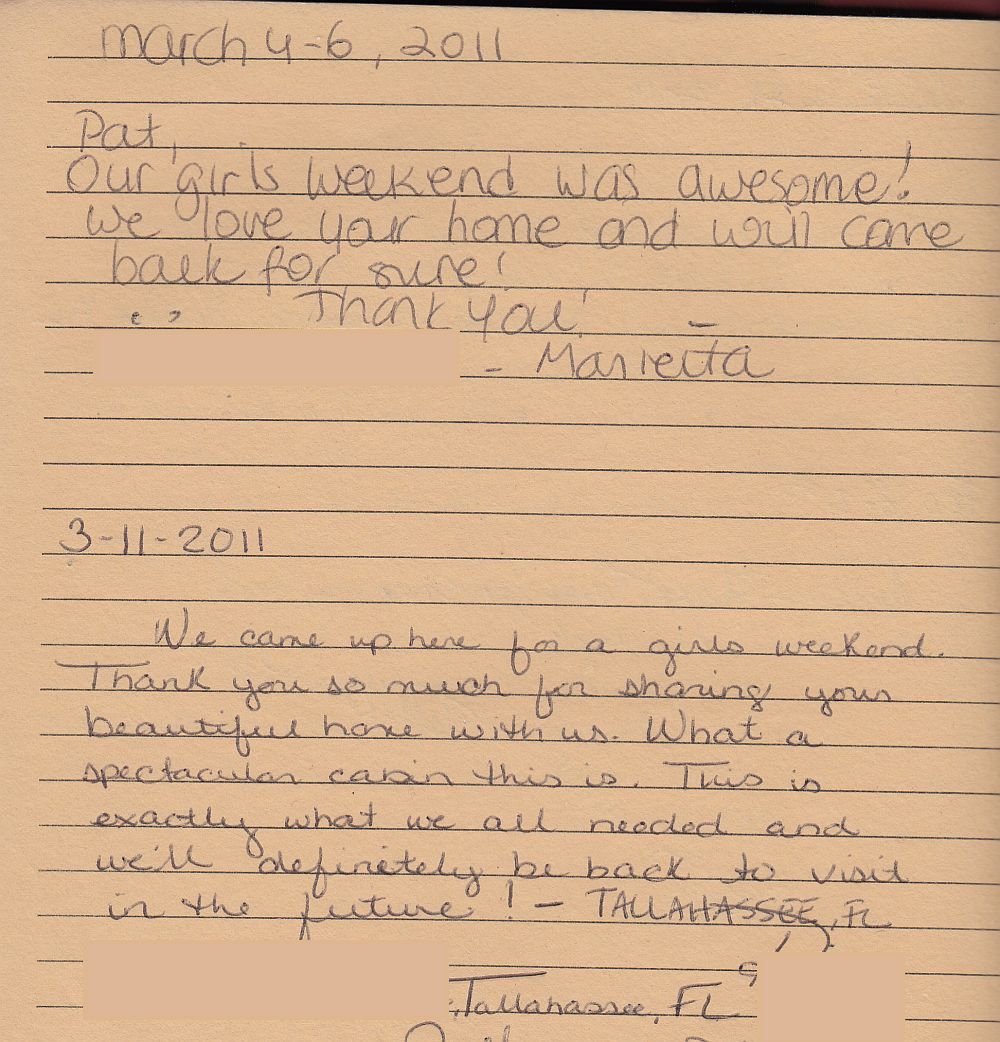 March 4-6, 2011
Pat,
Our girls weekend was awesome!
We love your home and will come
back for sure!
Thank you!
- Marietta
3-11-2011
We came up here for a girls weekend.
Thank you so much for sharing your
beautiful home with us. What a
spectacular cabin this is. This is
exactly what we all needed and
we'll definitely be back to visit
in the future! - TALLAHASSEE, FL
Tallahassee, FL